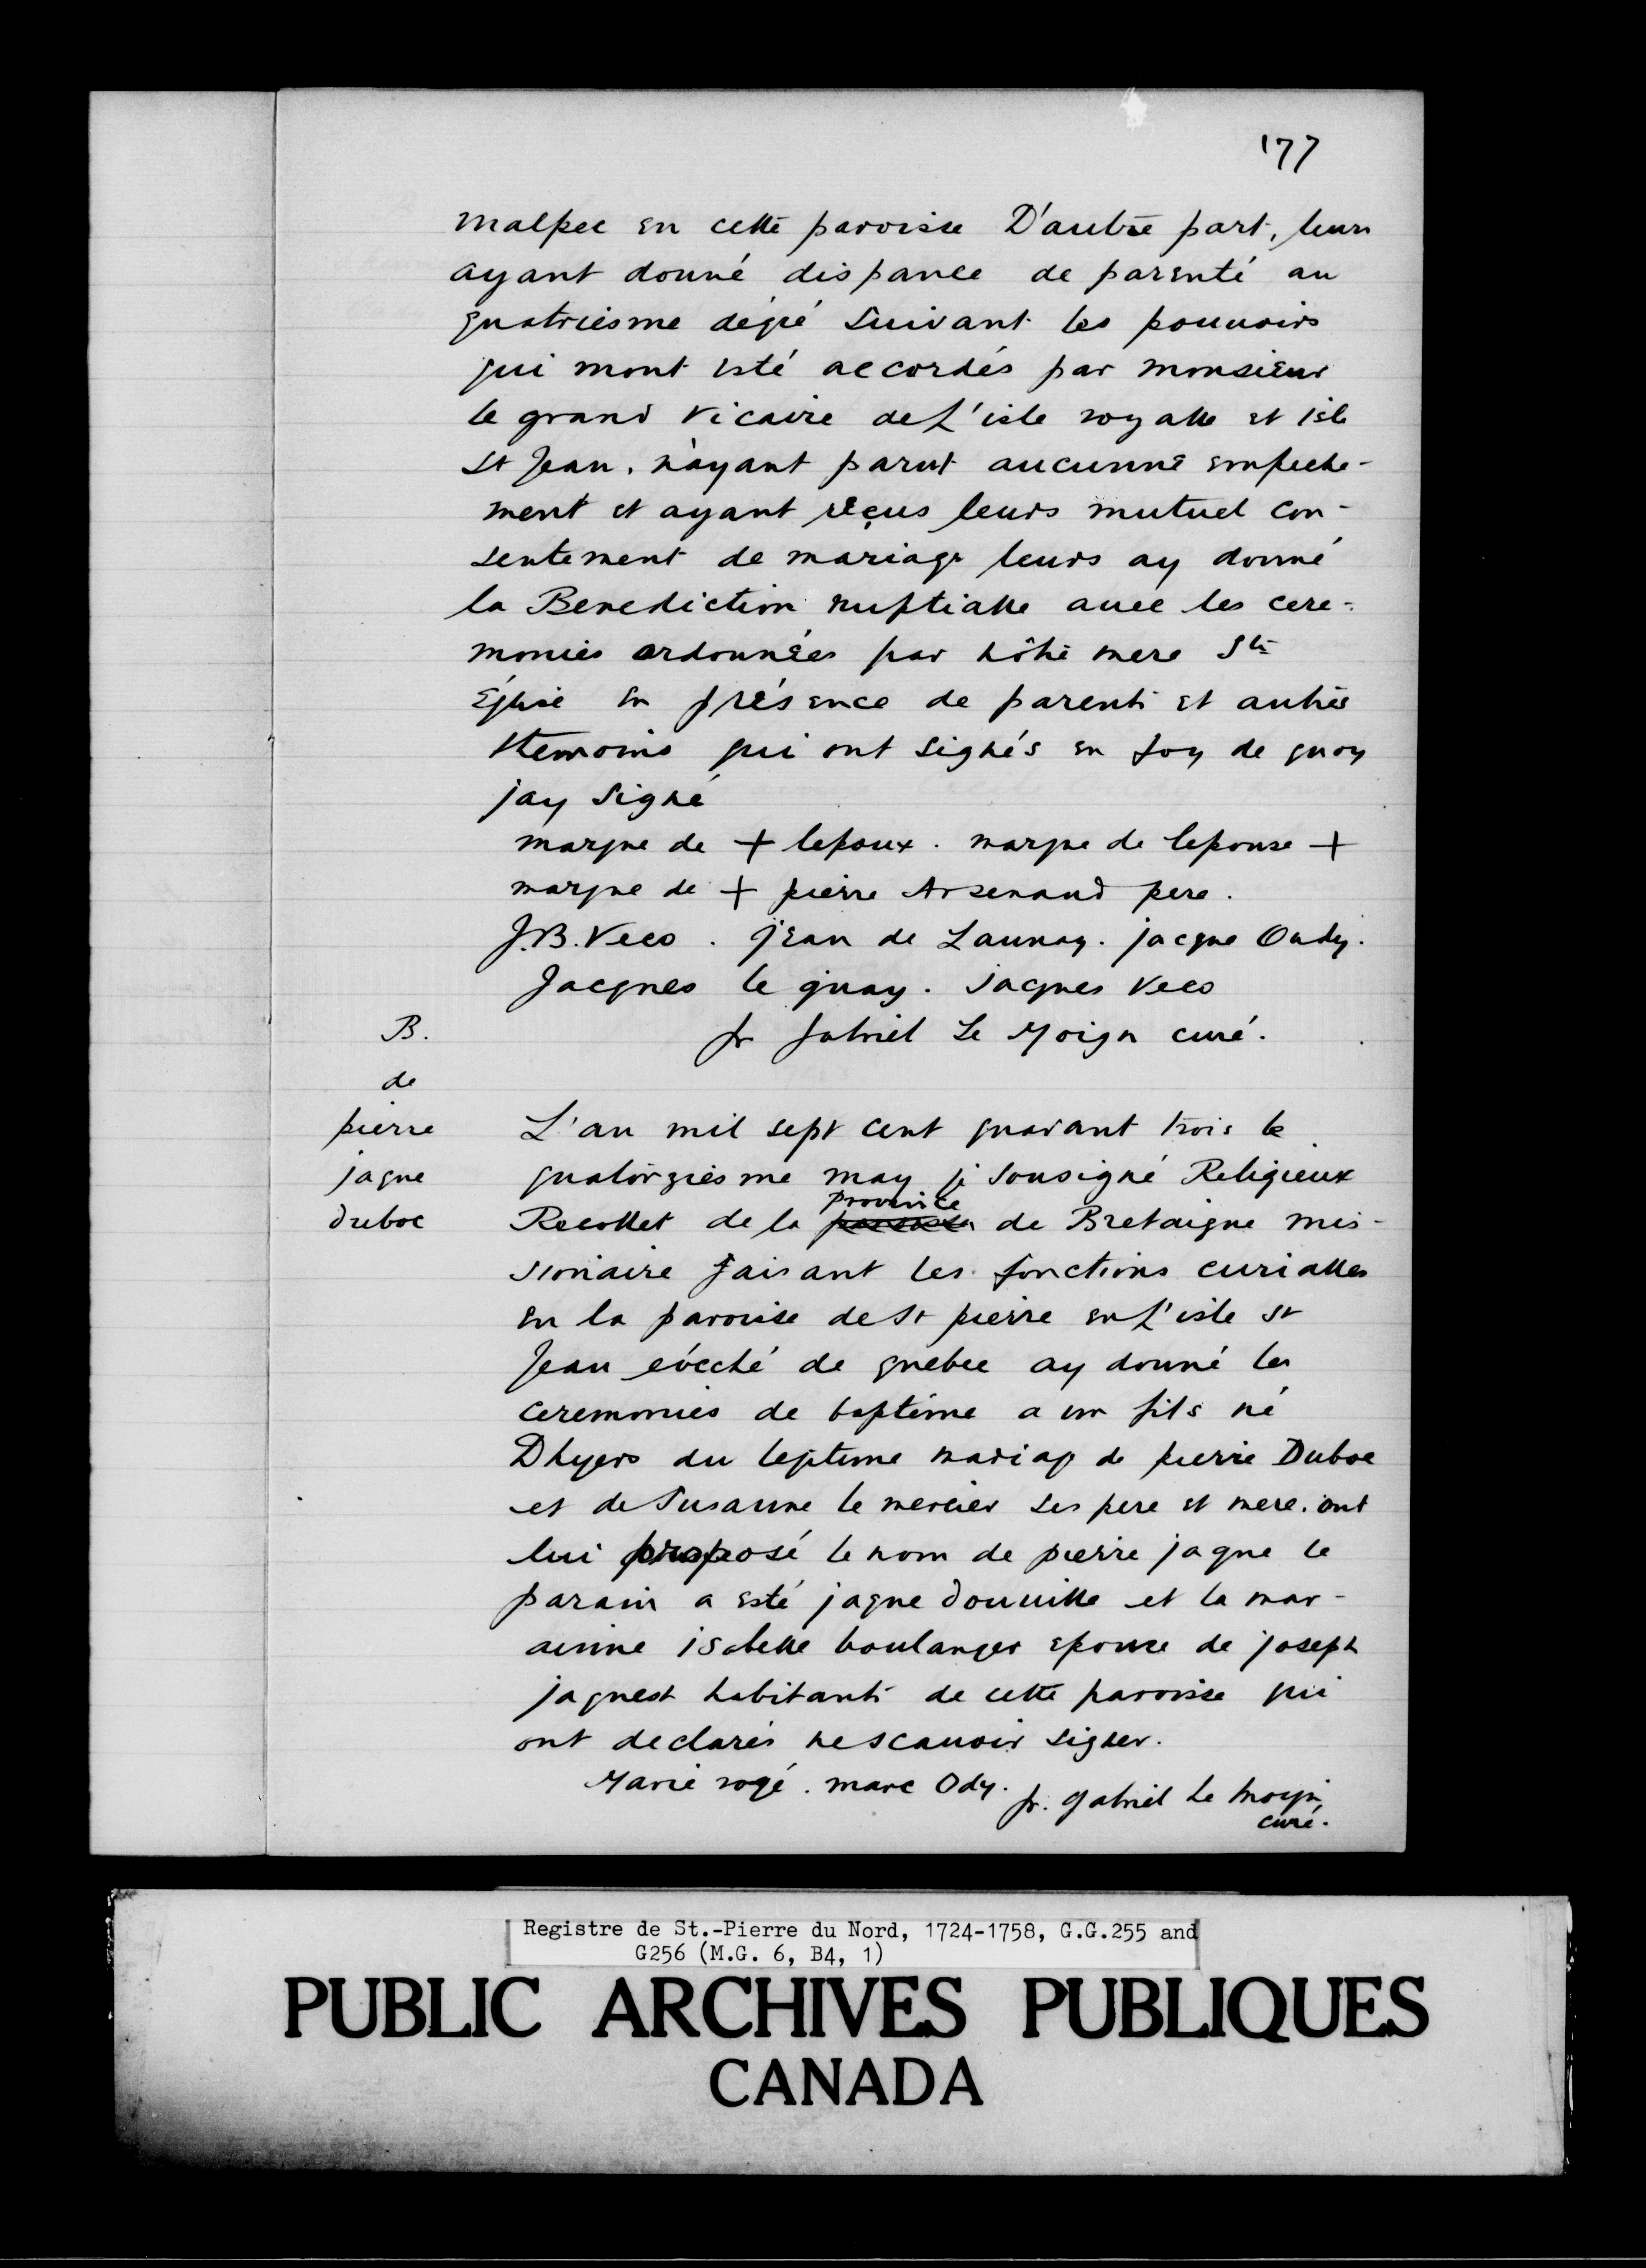 177
malpec en cette paroisse D'autre part, leurs
ayant donné dispance de parenté au
quatriesme dégré Suivant les pouuoirs
qui mont esté accordés par monsieur
le grand Vicaire de L'isle royalle et isle
St Jean, n'ayant parut aucunne empeche-
ment et ayant reçus leurs mutuel con-
sentement de mariage leurs ay donné
la Benediction nuptialle auec les cere-
monies ordonnées par nôtre mere Ste
Église en présence de parents et autres
ttemoins qui ont signés en foy de quoy
jay Signé
marque de + lepoux. marque de lepouse +
marque de + pierre Arsenaud pere.
J.B. Veco. jean de Launay. jacque Oudy.
Jacques le quay. Jacques Veco
fr gabriel Le Moign curé.
B.
de
pierre
jaque
duboc
L'an mil sept cent quarant trois le
quatorziesme may je sousigné Religieux
Recollet de la province de Bretaigne mis-
sionaire faisant les fonctions curialles
en la paroise de St pierre en L'isle St
Jean evêché de quebec ay donné les
ceremonies de baptême a un fils né
Dhyers du legitime mariage de pierre Duboc
et de Susanne le mercier ses pere et mere. ont
lui proposé le nom de pierre jaque le
parain a esté jaque douuille et la mar-
ainne isabelle boulanger epouse de joseph
jaquest habitants de cette paroisse qui
ont declarés ne scauoir signer.
Marie rogé. marc Ody. fr. gabriel Le moyn
curé.
Registre de St.-Pierre du Nord, 1724-1758, G.G.255 and
G256 (M.G. 6, B4, 1)
PUBLIC ARCHIVES PUBLIQUES
CANADA